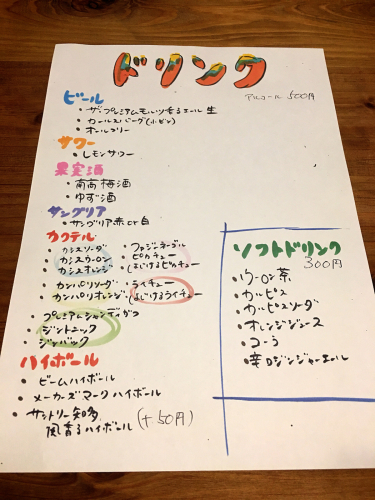 ドリンク
アルコール 500円
ビール
・ザ・プレミアムモルツ 香るエール 生
・カールスバーグ(小ビン)
・オールフリー
サワー
・レモンサワー
果実酒
・南高梅酒
・ゆず酒
サングリア
・サングリア 赤 or 白
カクテル
・カシスソーダ
・カシスウーロン
・カシスオレンジ
・カンパリソーダ
・カンパリオレンジ
・ファジーネーブル
・ピカチュー
・はじけるピカチュー
・ライチュー
・はじけるライチュー
・プレミアムシャンディガフ
・ジントニック
・ジンバック
ハイボール
・ビームハイボール
・メーカーズマークハイボール
・サントリー知多
風香るハイボール (+50円)
ソフトドリンク
300円
・ウーロン茶
・カルピス
・カルピスソーダ
・オレンジジュース
・コーラ
・辛口ジンジャーエール